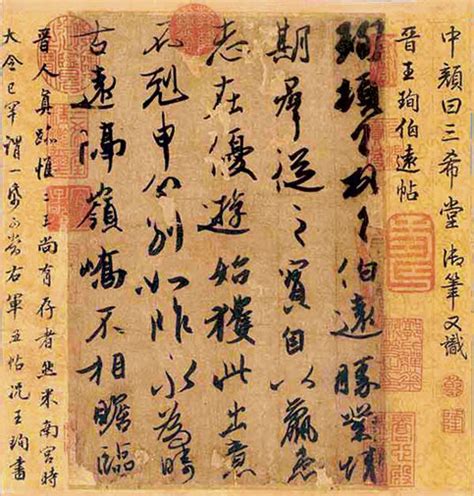 中顏曰三希堂御筆又識
晉王珣伯遠帖
珣頓首頓首伯遠勝業情
期羣從之寶自以羸患
志在優遊始獲此出意
不剋申分別如昨永為疇
古遠隔嶺嶠不相瞻臨
晉人真跡惟二王尚有存者然米南宮時
大令已罕謂一帋可當右軍五帖況王珣書